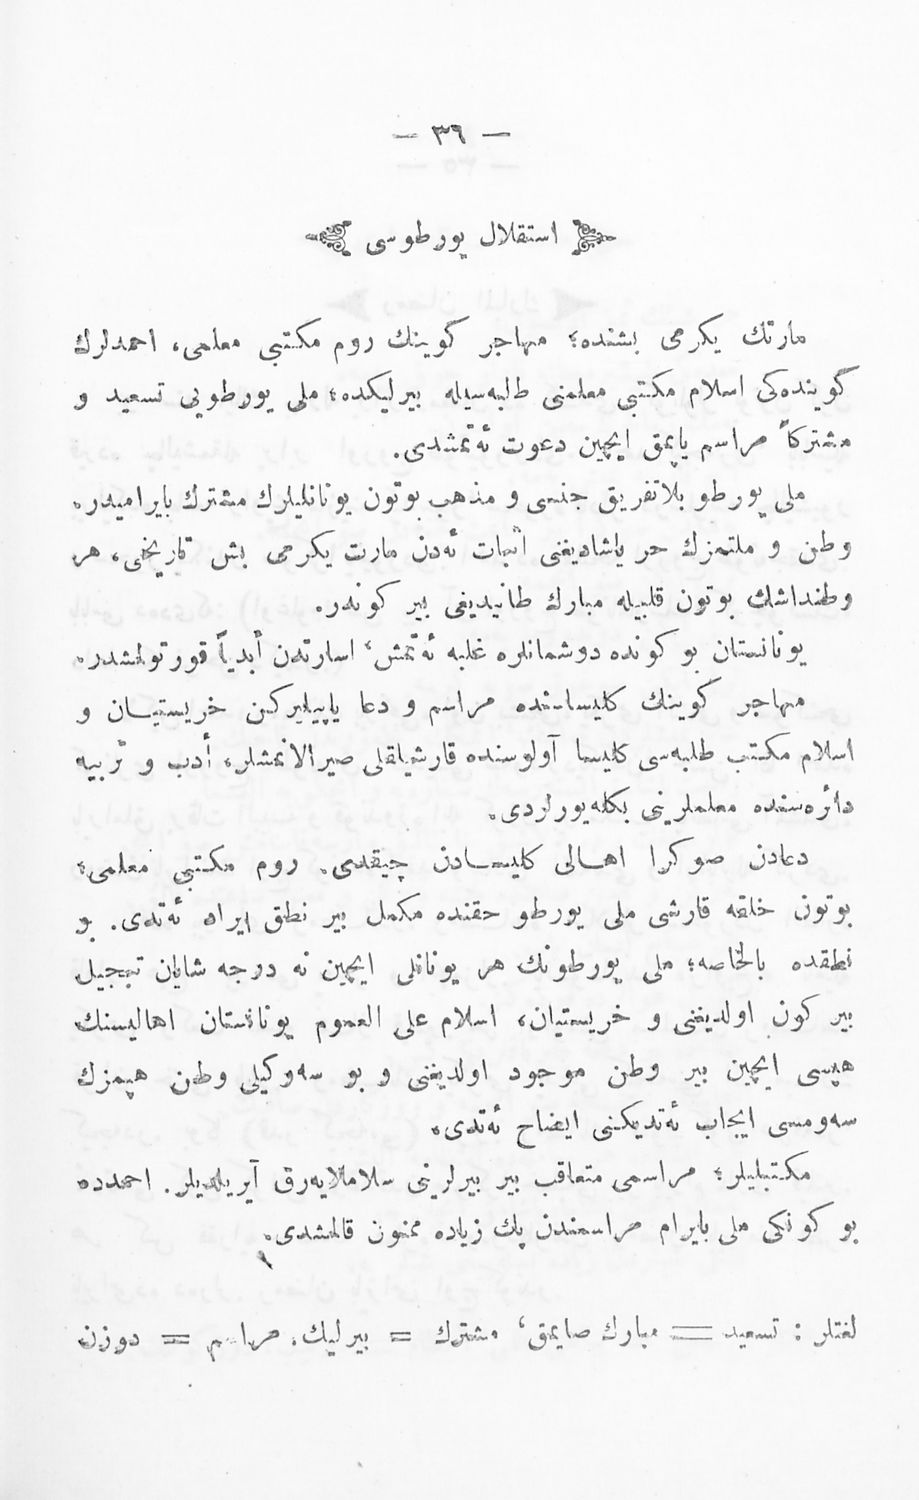 — ٣٦ —
استقلال يورطوسى
مارتك يكرمى بشنده؛ مهاجر گوينك روم مكتبى معلمى، احمدلرك
گوينده‌كى اسلام مكتبى معلمنى طلبه‌سيله بيرليكده؛ ملى يورطويى تسعيد و
مشتركاً مراسم ياپمق ايچين دعوت ئه‌تمشدى.
ملى يورطو بلاتفريق جنسى و مذهب بوتون يونانليلرك مشترك بايراميدر.
وطن و ملتمزك حر ياشاديغنى اثبات ئه‌دن مارت يكرمى بش تاريخى، هر
وطنداشك بوتون قلبيله مبارك طانيديغى بير كوندر.
يونانستان بو كونده دوشمانلره غلبه ئه‌تمش، اسارتدن أبدياً قورتولمشدر.
مهاجر گوينك كليساسنده مراسم و دعا ياپيليركن خريستيان و
اسلام مكتب طلبه‌سى كليسا آولوسنده قارشيلقلى صيرالانمشلر، أدب و تربيه
دائره‌سنده معلملرينى بكله‌يورلردى.
دعادن صوكرا اهالى كليسادن چيقدى. روم مكتبى معلمى؛
بوتون خلقه قارشى ملى يورطو حقنده مكمل بير نطق ايراد ئه‌تدى. بو
نطقده بالخاصه؛ ملى يورطونك هر يونانلى ايچين نه درجه شايان تبجيل
بير كون اولديغنى و خريستيان، اسلام على العموم يونانستان اهاليسنك
هپسى ايچين بير وطن موجود اولديغنى و بو سه‌وكيلى وطن هپمزك
سه‌ومسى ايجاب ئه‌تديكنى ايضاح ئه‌تدى.
مكتبليلر؛ مراسمى متعاقب بير بيرلرينى سلاملايه‌رق آيريلديلر. احمدده
بو كونكى ملى بايرام مراسمندن پك زياده ممنون قالمشدى.
لغتلر : تسعيد = مبارك صايمق، مشترك = بيرليك، مراسم = دوزن